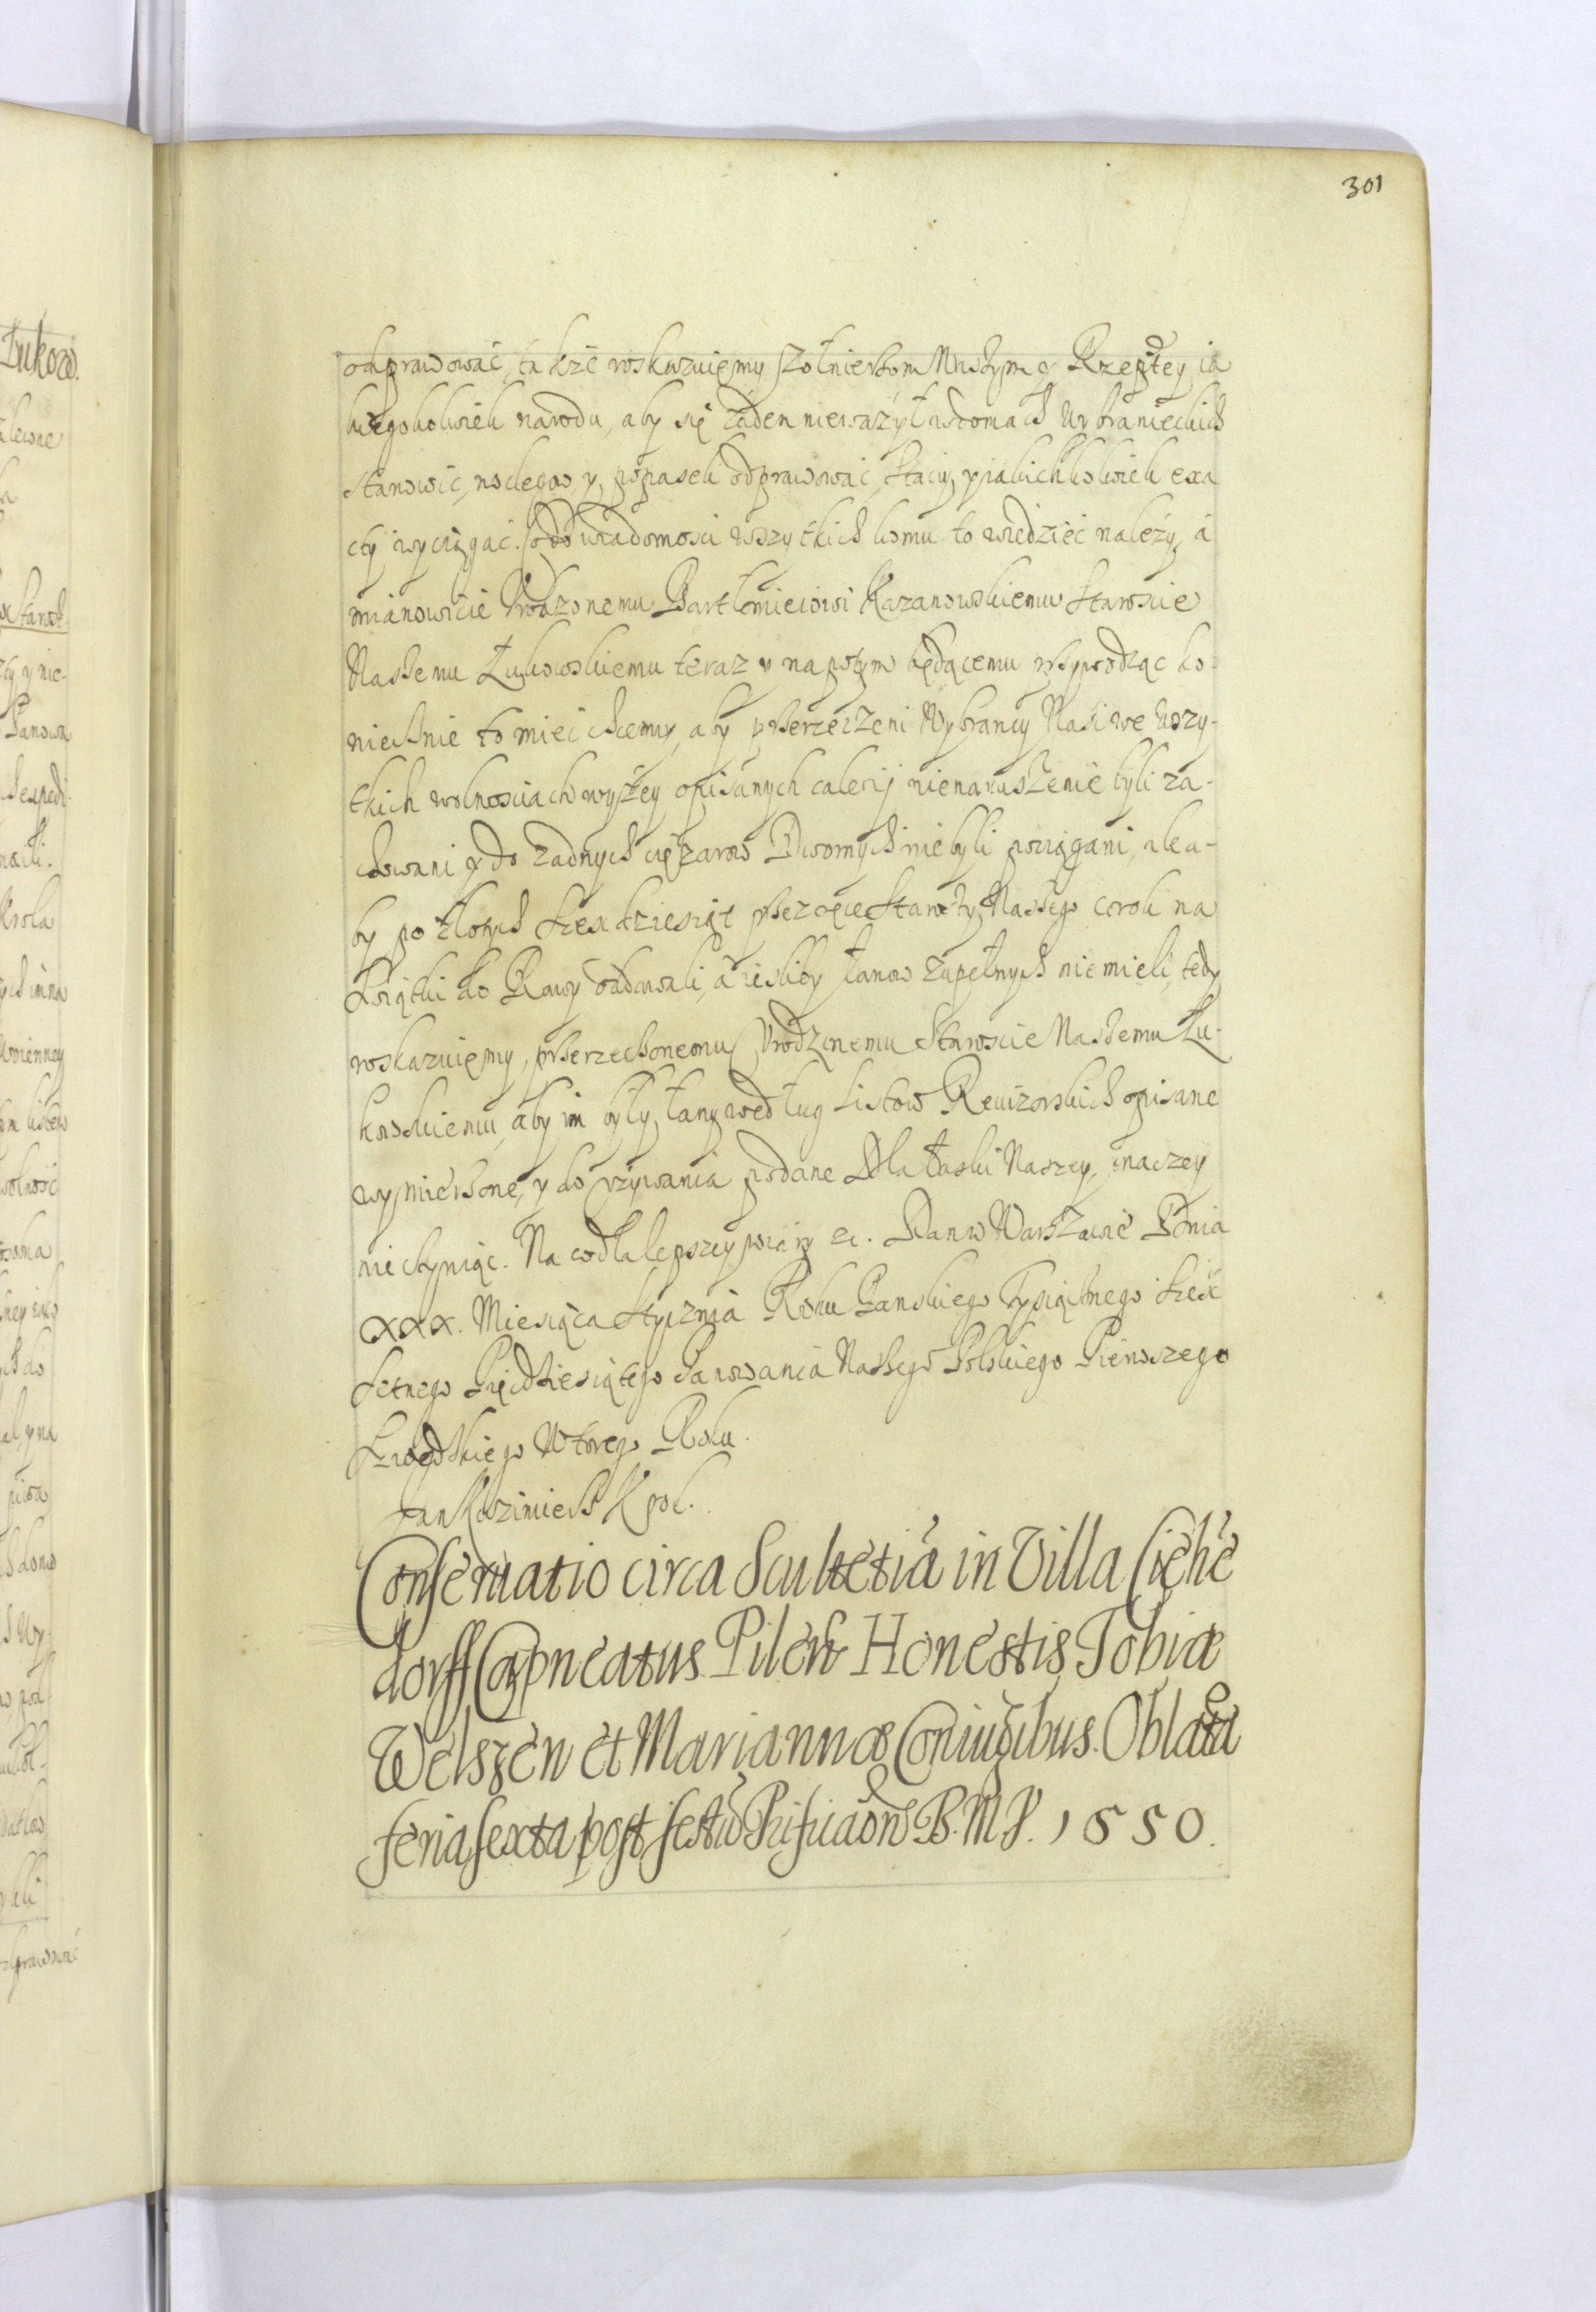 301
odprawować, także roskazuięmy Zołnierzom Naszym y Rzeptey ia
kiegokolwiek narodu, aby się żaden nieważył wdomach Wybranieckich
stanowić, noclegow y popasek odprawować, stacij y iakichkolwiek exa
cty wyciągać. Co do wiadomosci wszytkich komu to wiedzieć należy, á
mianowicie Vrodzonemu Bartłomieiowi Kazanowskiemu Staroscie
Naszemu Łukowskiemu teraz y napotym będącemu przywodząc ko
niecznie to mieć chcemy, aby przerzeczeni Wybrancy Nasi we wszy-
tkich wolnosciach wyżey opisanych calerij nienaruszenie byli za-
chowani y do żadnych ciężarow Dwornych nie byli pociągani, ale a-
by po złotych szescdziesiąt przez ręce Starosty Naszego corok na
kwartę do Rawy oddawali, á iesliby łanow zupełnych nie mieli, tedy
roskazuięmy, przerzeczonemu Vrodzonemu Staroscie Naszemu Łu-
kowskiemu, aby im były łany według listow Rewizorskich opisane
wymierzone, y do vżywania podane Dla łaski Naszey, inaczey
nie czyniąc. Na co dla lepszey wiary &c. Dan w Warszawie Dnia
XXX. Miesiąca Stycznia Roku Panskiego Tysiącznego szesc
setnego Pięcdziesiątego Panowania Naszego Polskiego Pierwszego
Szwedzkiego Wtorego Roku.
Jan Kazimierz Krol.
Conseruatio circa Scultetiã in Villa
dorff Capneatus Pilen Honestis Tobiæ
Welszen et Mariannæ Coniugibus. Oblata
feria sexta post festũ Purificaõn B. M. V. 1650.